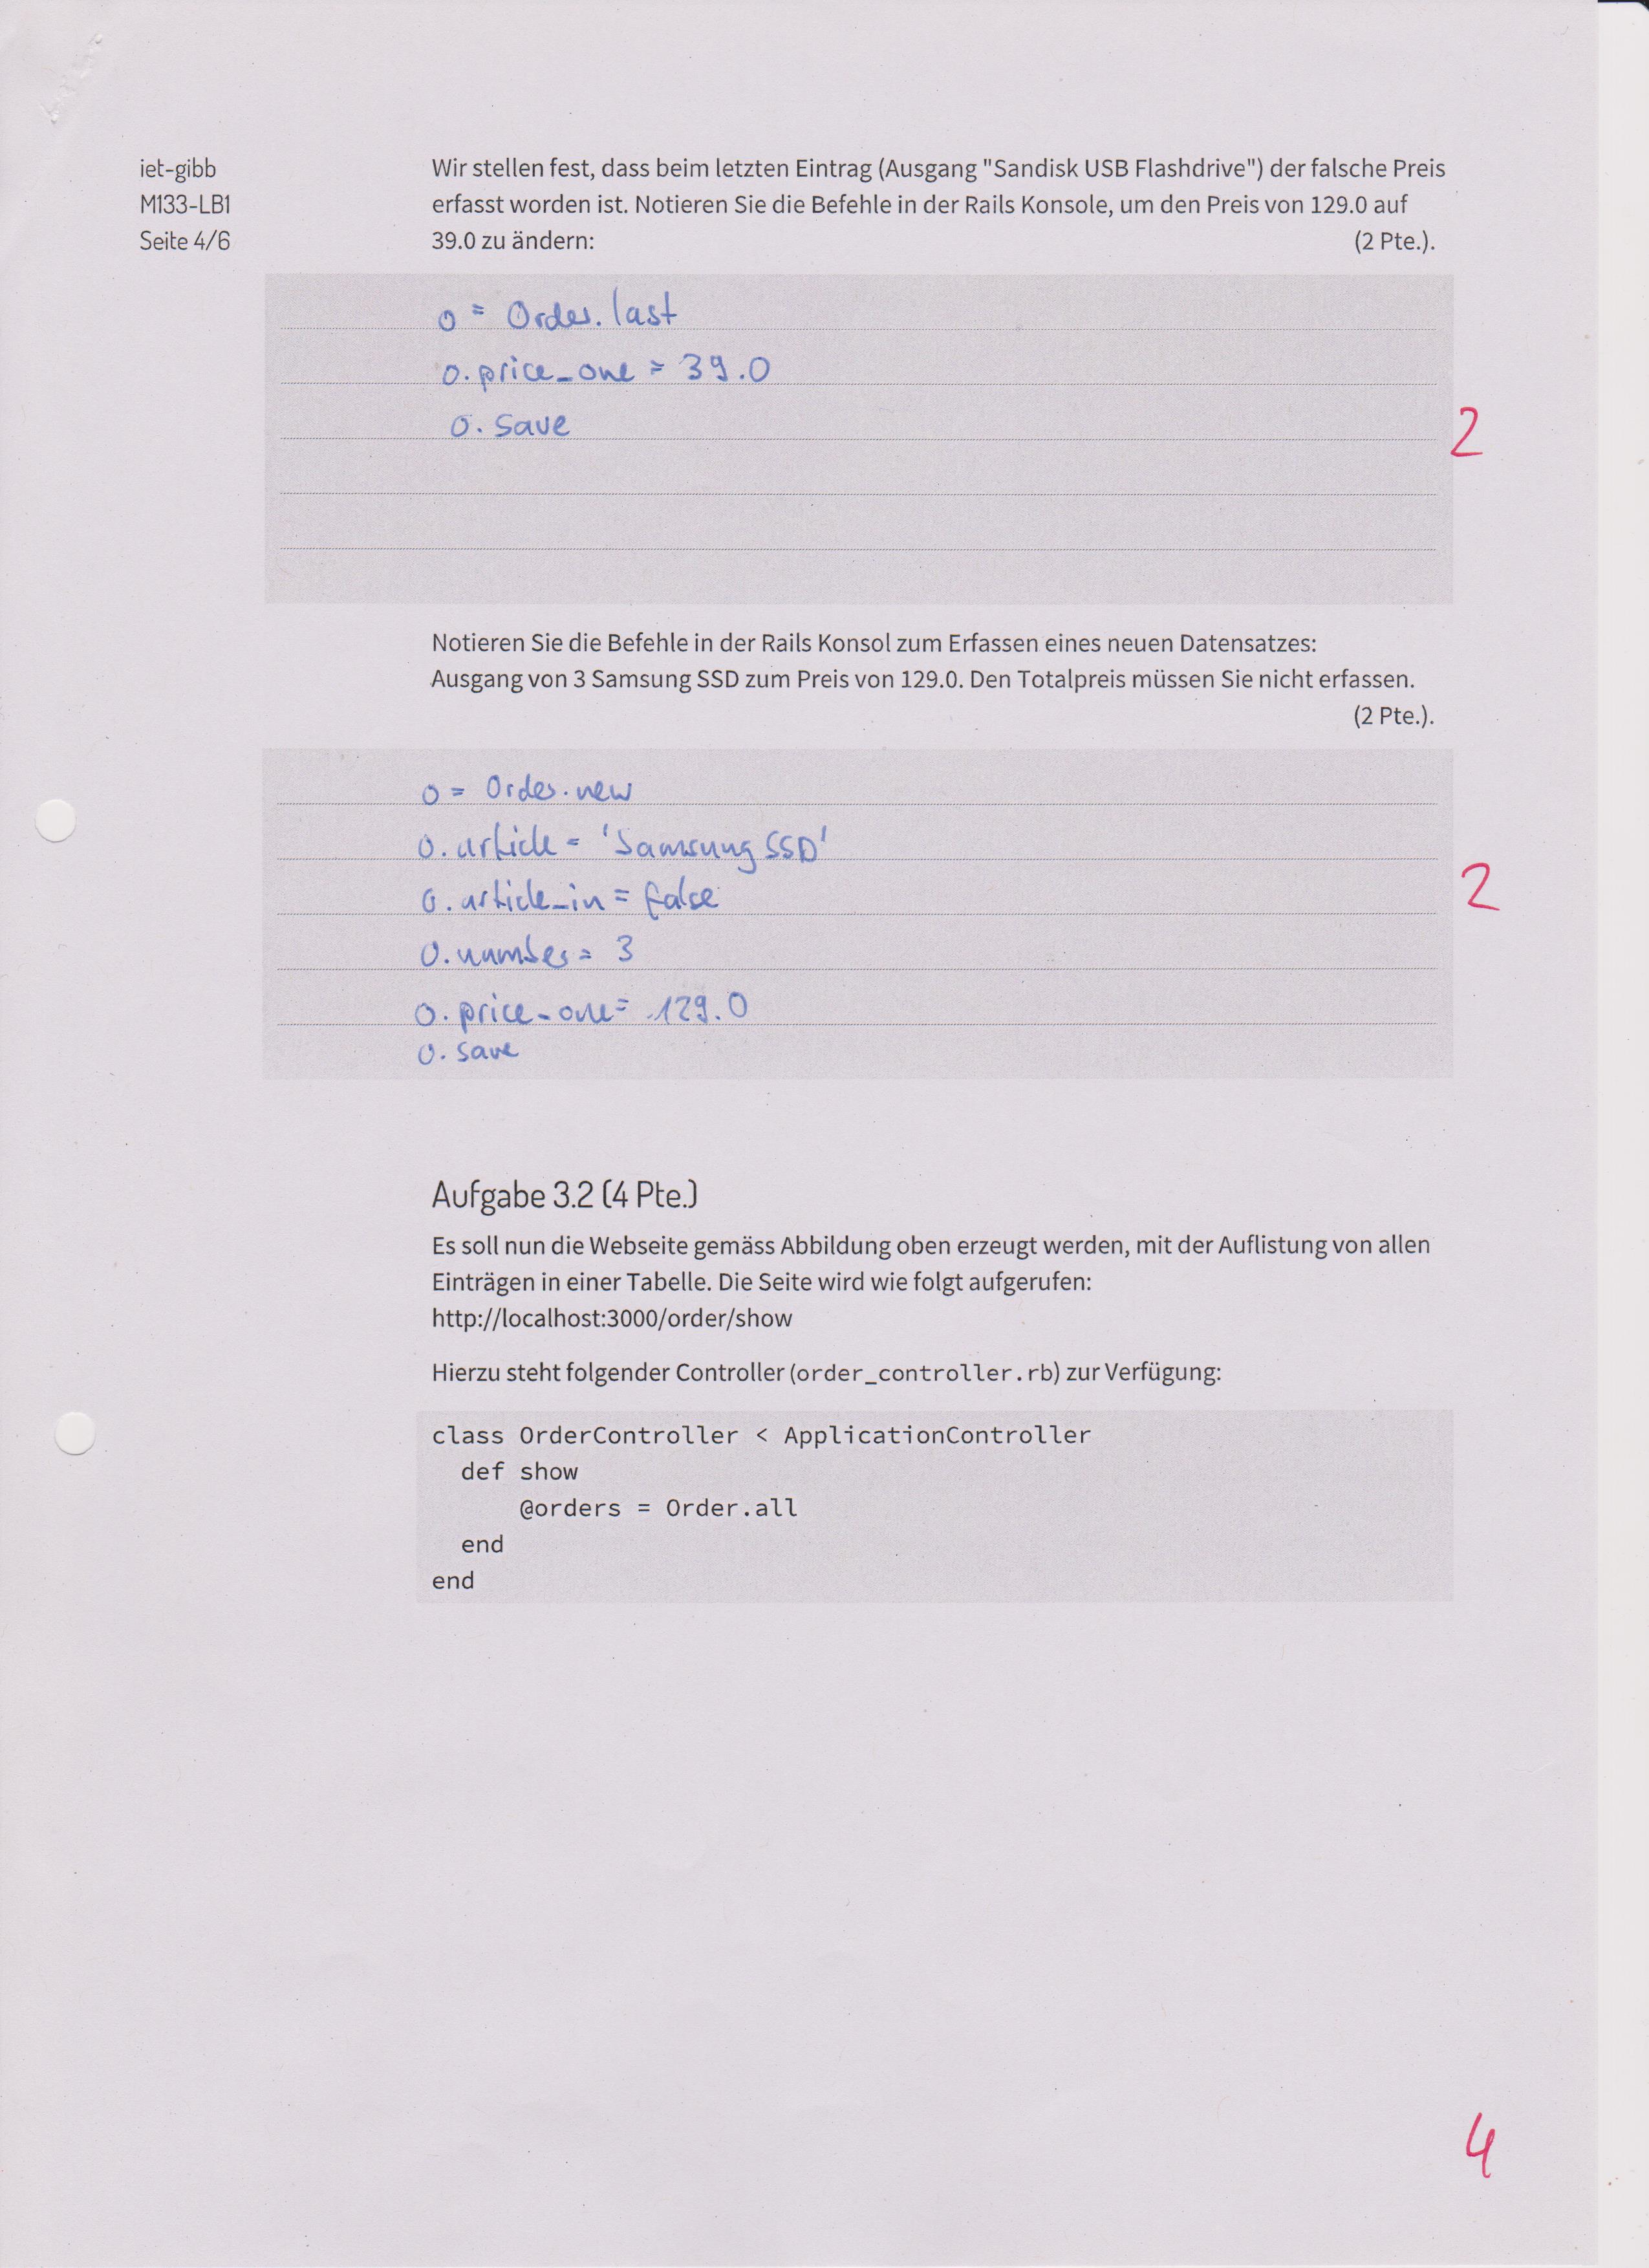 iet-gibb
M133-LB1
Seite 4/6
Wir stellen fest, dass beim letzten Eintrag (Ausgang "Sandisk USB Flashdrive") der falsche Preis
erfasst worden ist. Notieren Sie die Befehle in der Rails Konsole, um den Preis von 129.0 auf
39.0 zu ändern: (2 Pte.).
o = Order.last
o.price_one = 39.0
o.save
2
Notieren Sie die Befehle in der Rails Konsol zum Erfassen eines neuen Datensatzes:
Ausgang von 3 Samsung SSD zum Preis von 129.0. Den Totalpreis müssen Sie nicht erfassen.
(2 Pte.).
o = Order.new
o.article = 'Samsung SSD'
o.article_in = false
o.number = 3
o.price_one = 129.0
o.save
2
Aufgabe 3.2 (4 Pte.)
Es soll nun die Webseite gemäss Abbildung oben erzeugt werden, mit der Auflistung von allen
Einträgen in einer Tabelle. Die Seite wird wie folgt aufgerufen:
http://localhost:3000/order/show
Hierzu steht folgender Controller (order_controller.rb) zur Verfügung:
class OrderController < ApplicationController
def show
@orders = Order.all
end
end
4